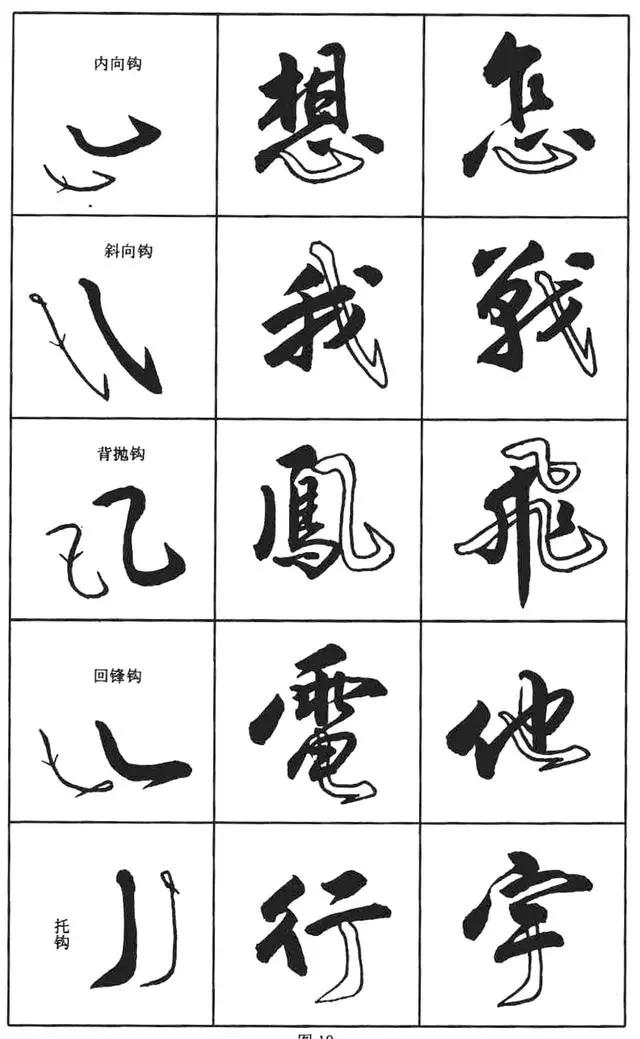 内向钩 想 怎
斜向钩 我 戰
背抛钩 鳳 飛
回锋钩 電 他
托钩 行 宇
图 19